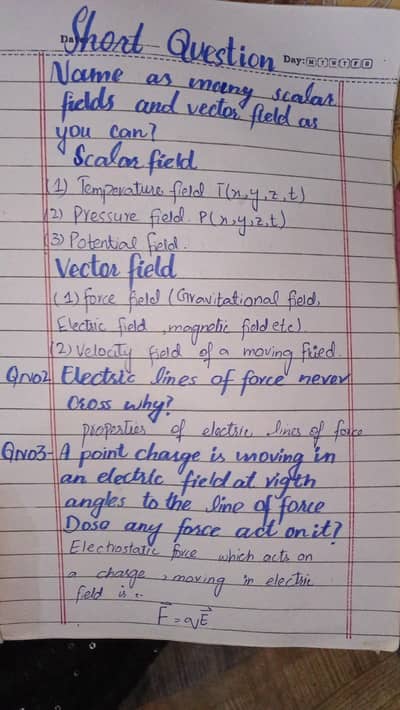 Short Question
Day: M T W T F S
Name as many scalar
fields and vector field as
you can?
Scalar field
(1) Temperature field T(x,y,z,t)
(2) Pressure field. P(x,y,z,t)
(3) Potential field.
Vector field
(1) force field (Gravitational field,
Electric field, magnetic field etc).
(2) Velocity field of a moving fried.
QNo2 Electric lines of force never
cross why?
properties of electric lines of force
QNo3- A point charge is moving in
an electric field at rigth
angles to the line of force
Doso any force act on it?
Electrostatic force which acts on
a charge, moving in electric
field is :-
F⃗ = qE⃗